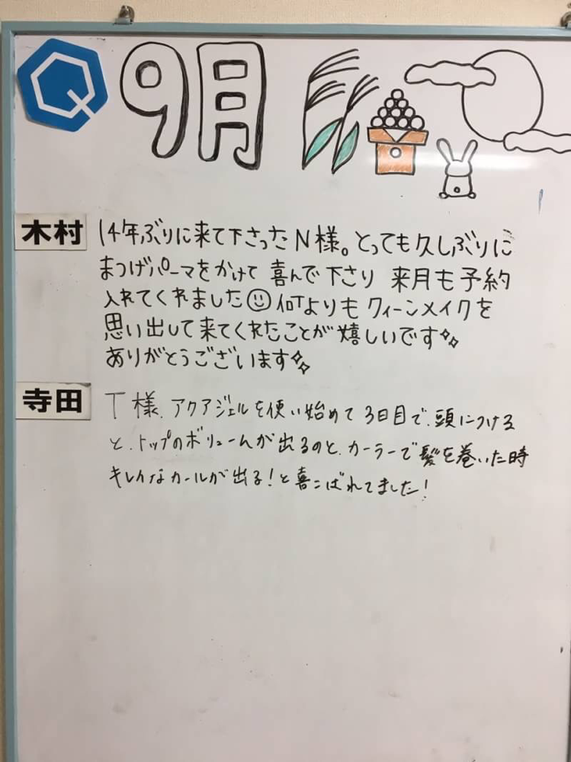 Q 9月
木村 14年ぶりに来て下さったN様。とっても久しぶりに
まつげパーマをかけて 喜んで下さり 来月も予約
入れてくれました 何よりも クィーンメイクを
思い出して来てくれたことが嬉しいです
ありがとうございます
寺田 T様、アクアジェルを使い始めて3日目で、頭につける
と、トップのボリュームが出るのと、カーラーで髪を巻いた時
キレイなカールが出る!と喜こばれてました!